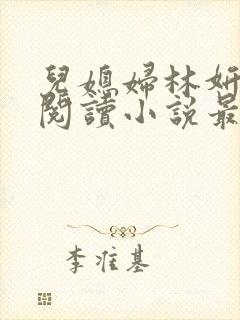 兒媳婦林妍
閱讀小説最
李准基